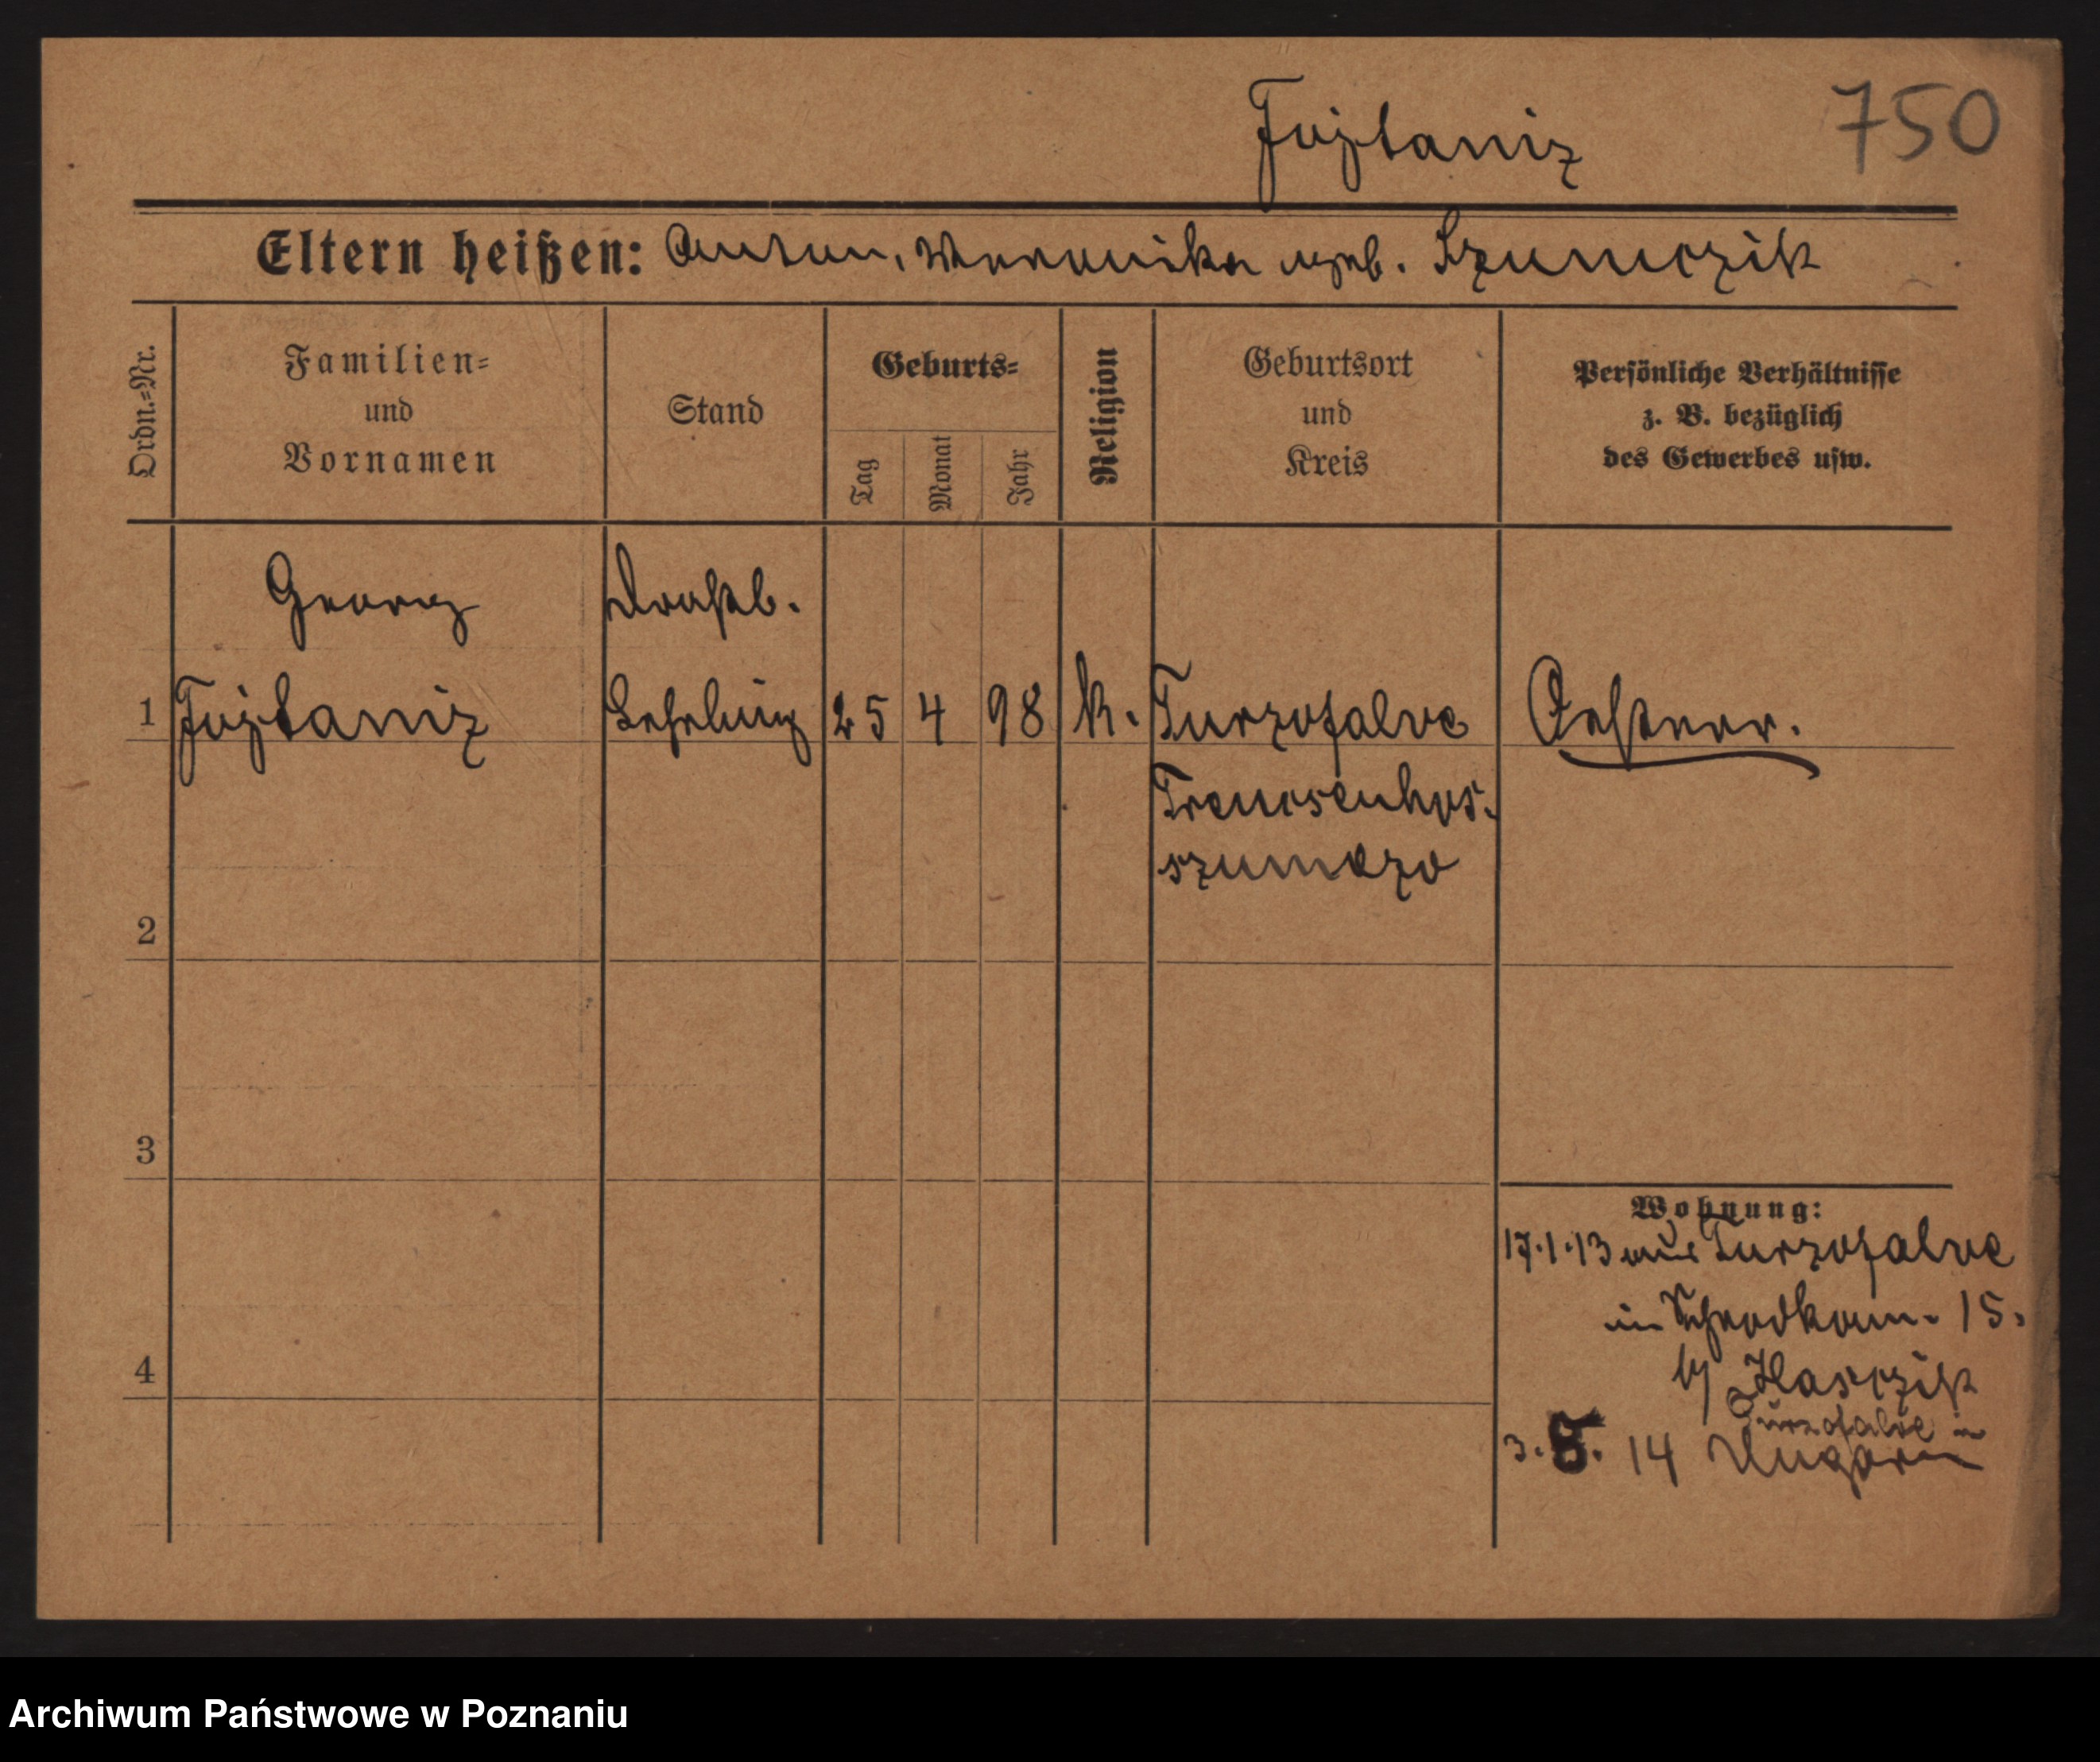 Fojtaniz
750
Eltern heißen: Anton, Weronika geb. Szumczik
Ordn.=Nr.
Familien=
und
Vornamen
Stand
Geburts=
Tag
Monat
Jahr
Religion
Geburtsort
und
Kreis
Persönliche Verhältnisse
z. B. bezüglich
des Gewerbes usw.
Georg
Drahtb.
1
Fojtaniz
Lehrling
25
4
98
K.
Turzofalve
Oesterr.
2
3
4
Wohnung:
17.1.13 aus Turzofalve
in Schrodkam. 15.
b/
Turzofalve in
3. 14 Ungarn
Archiwum Państwowe w Poznaniu